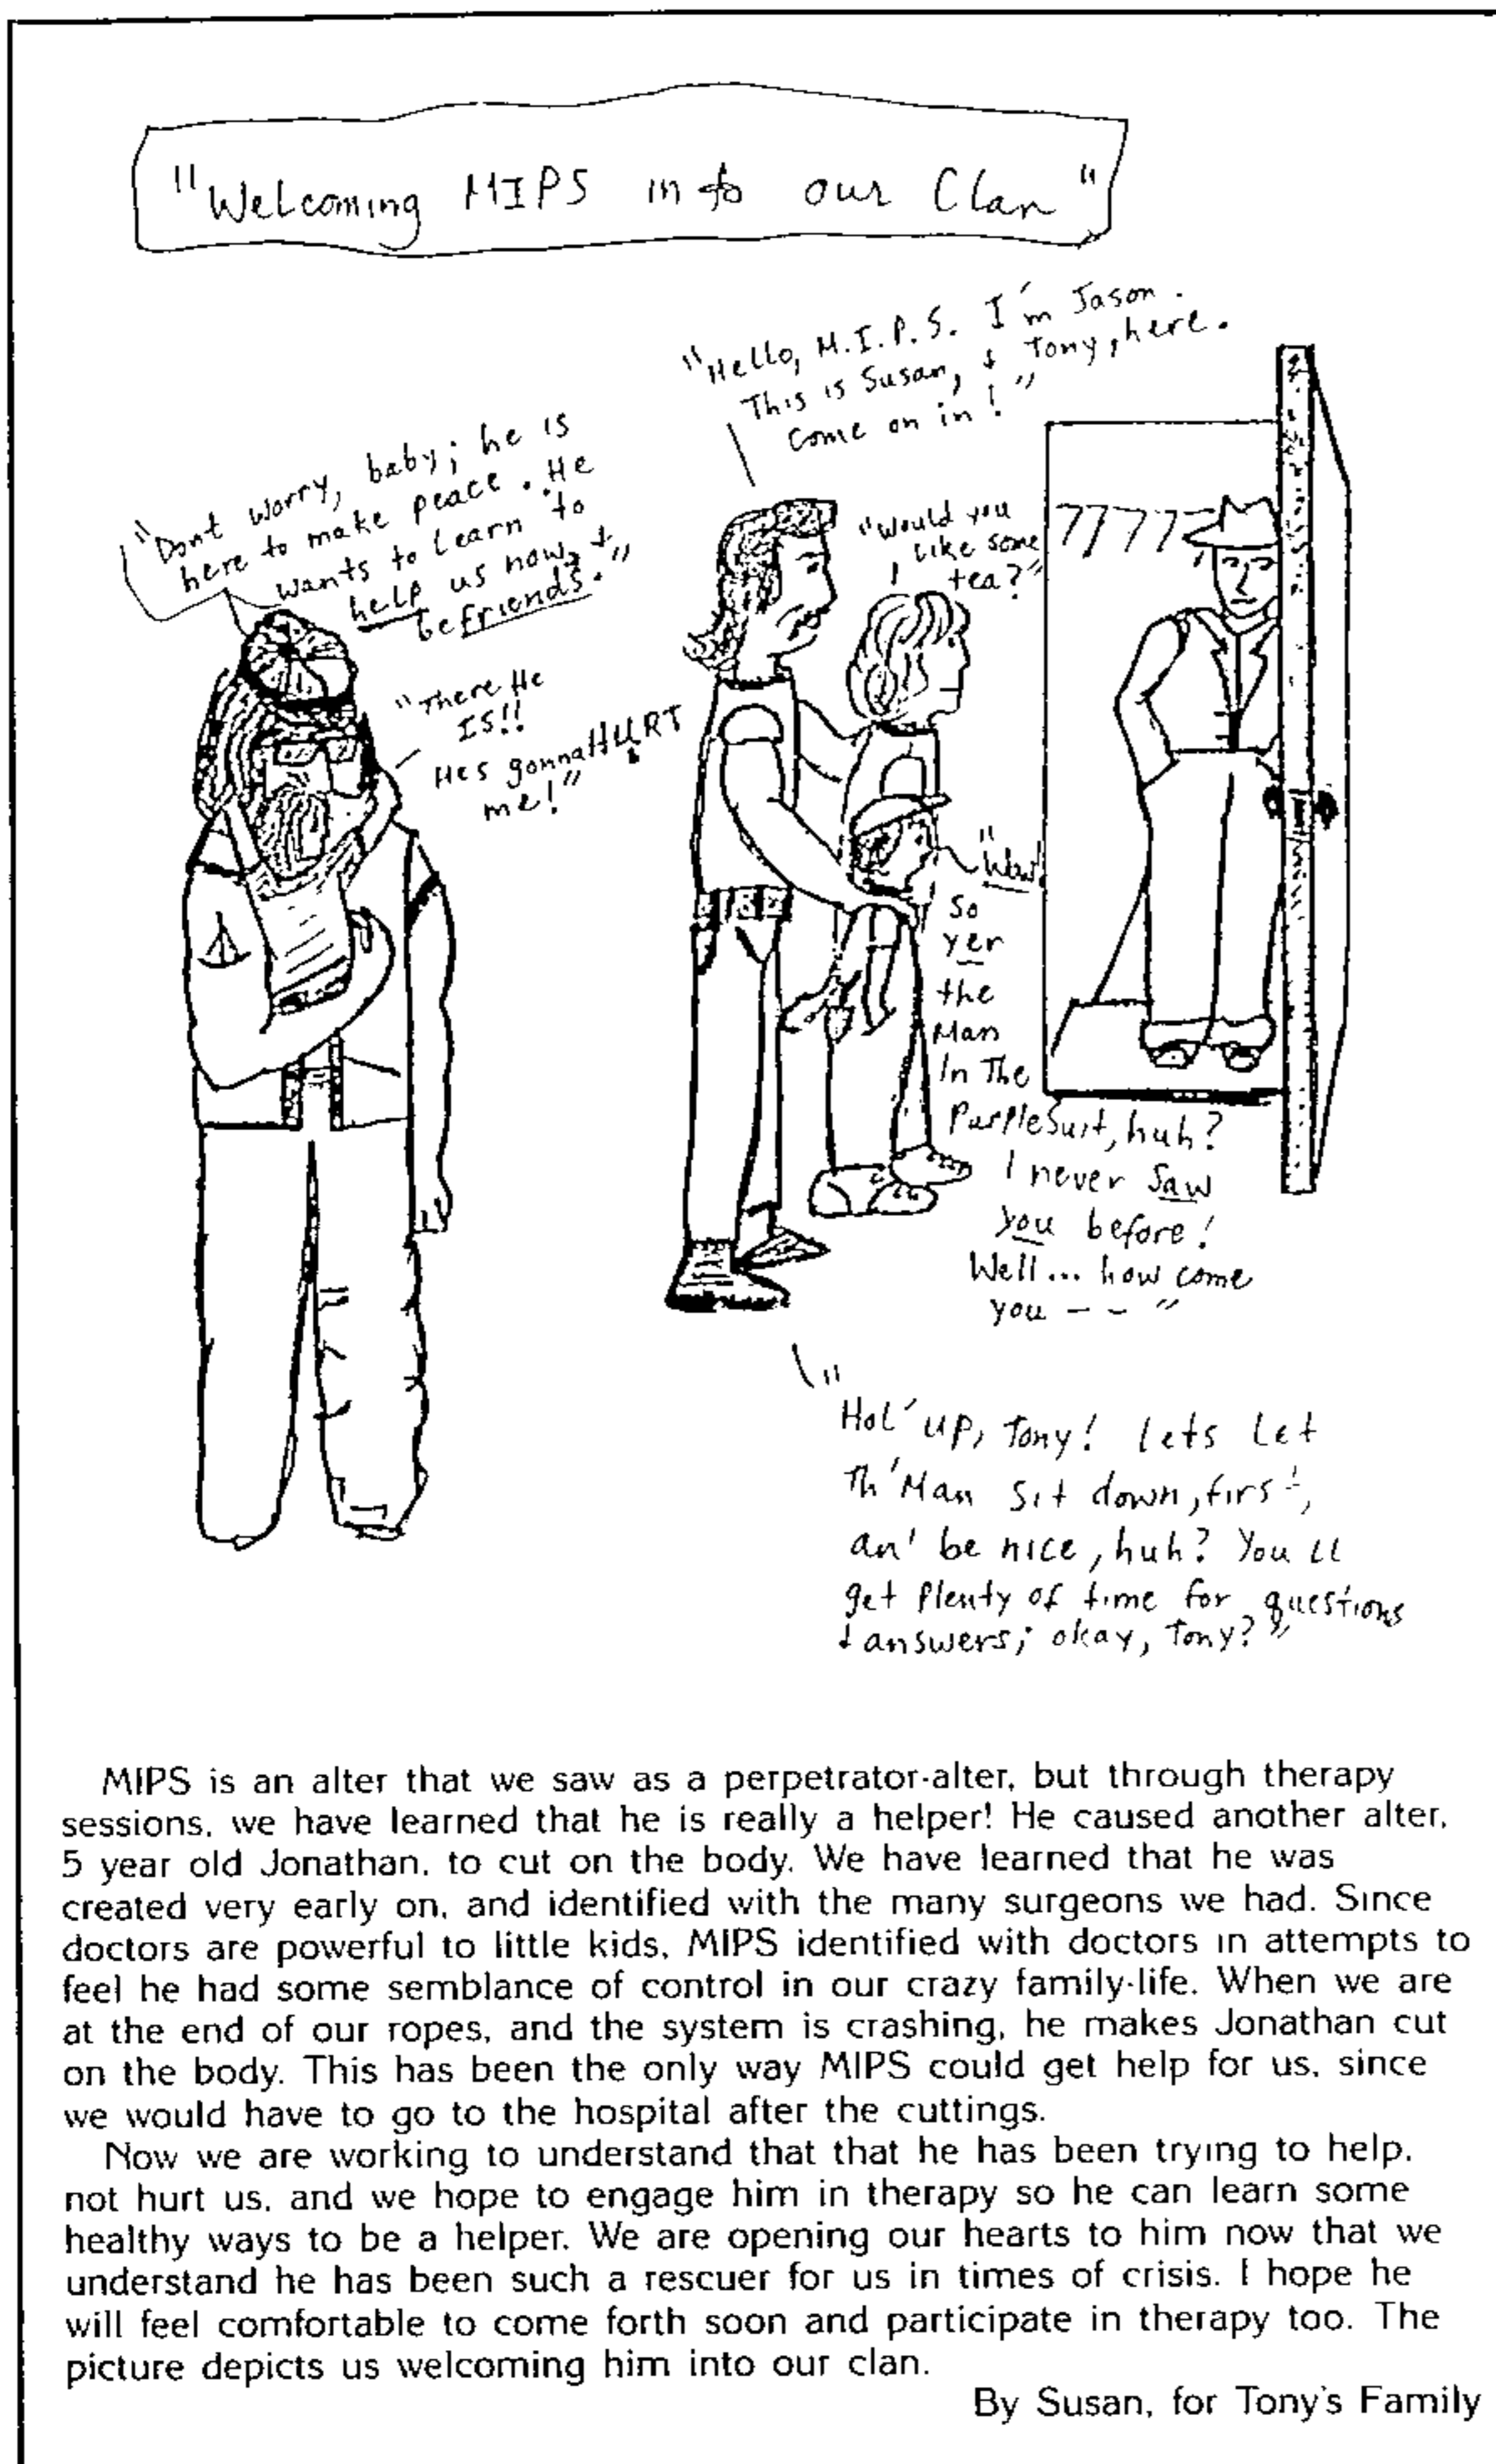 "Welcoming MIPS into our Clan"
"Hello, M.I.P.S. I'm Jason.
This is Susan, & Tony, here.
Come on in!"
"Dont worry, baby; he is
here to make peace. He
wants to learn to
help us now, &
be friends."
"There He
IS!!
Hes gonna HURT
me!"
"Would you
like some
tea?"
"Wow!
So
yer
the
Man
In The
Purple Suit, huh?
I never saw
you before!
Well... how come
you - - "
"Hol' up, Tony! lets let
Th' Man sit down, first,
an' be nice, huh? You ll
get plenty of time for questions
& answers; okay, Tony?"
MIPS is an alter that we saw as a perpetrator-alter, but through therapy
sessions, we have learned that he is really a helper! He caused another alter,
5 year old Jonathan, to cut on the body. We have learned that he was
created very early on, and identified with the many surgeons we had. Since
doctors are powerful to little kids, MIPS identified with doctors in attempts to
feel he had some semblance of control in our crazy family-life. When we are
at the end of our ropes, and the system is crashing, he makes Jonathan cut
on the body. This has been the only way MIPS could get help for us, since
we would have to go to the hospital after the cuttings.
Now we are working to understand that that he has been trying to help,
not hurt us, and we hope to engage him in therapy so he can learn some
healthy ways to be a helper. We are opening our hearts to him now that we
understand he has been such a rescuer for us in times of crisis. I hope he
will feel comfortable to come forth soon and participate in therapy too. The
picture depicts us welcoming him into our clan.
By Susan, for Tony's Family